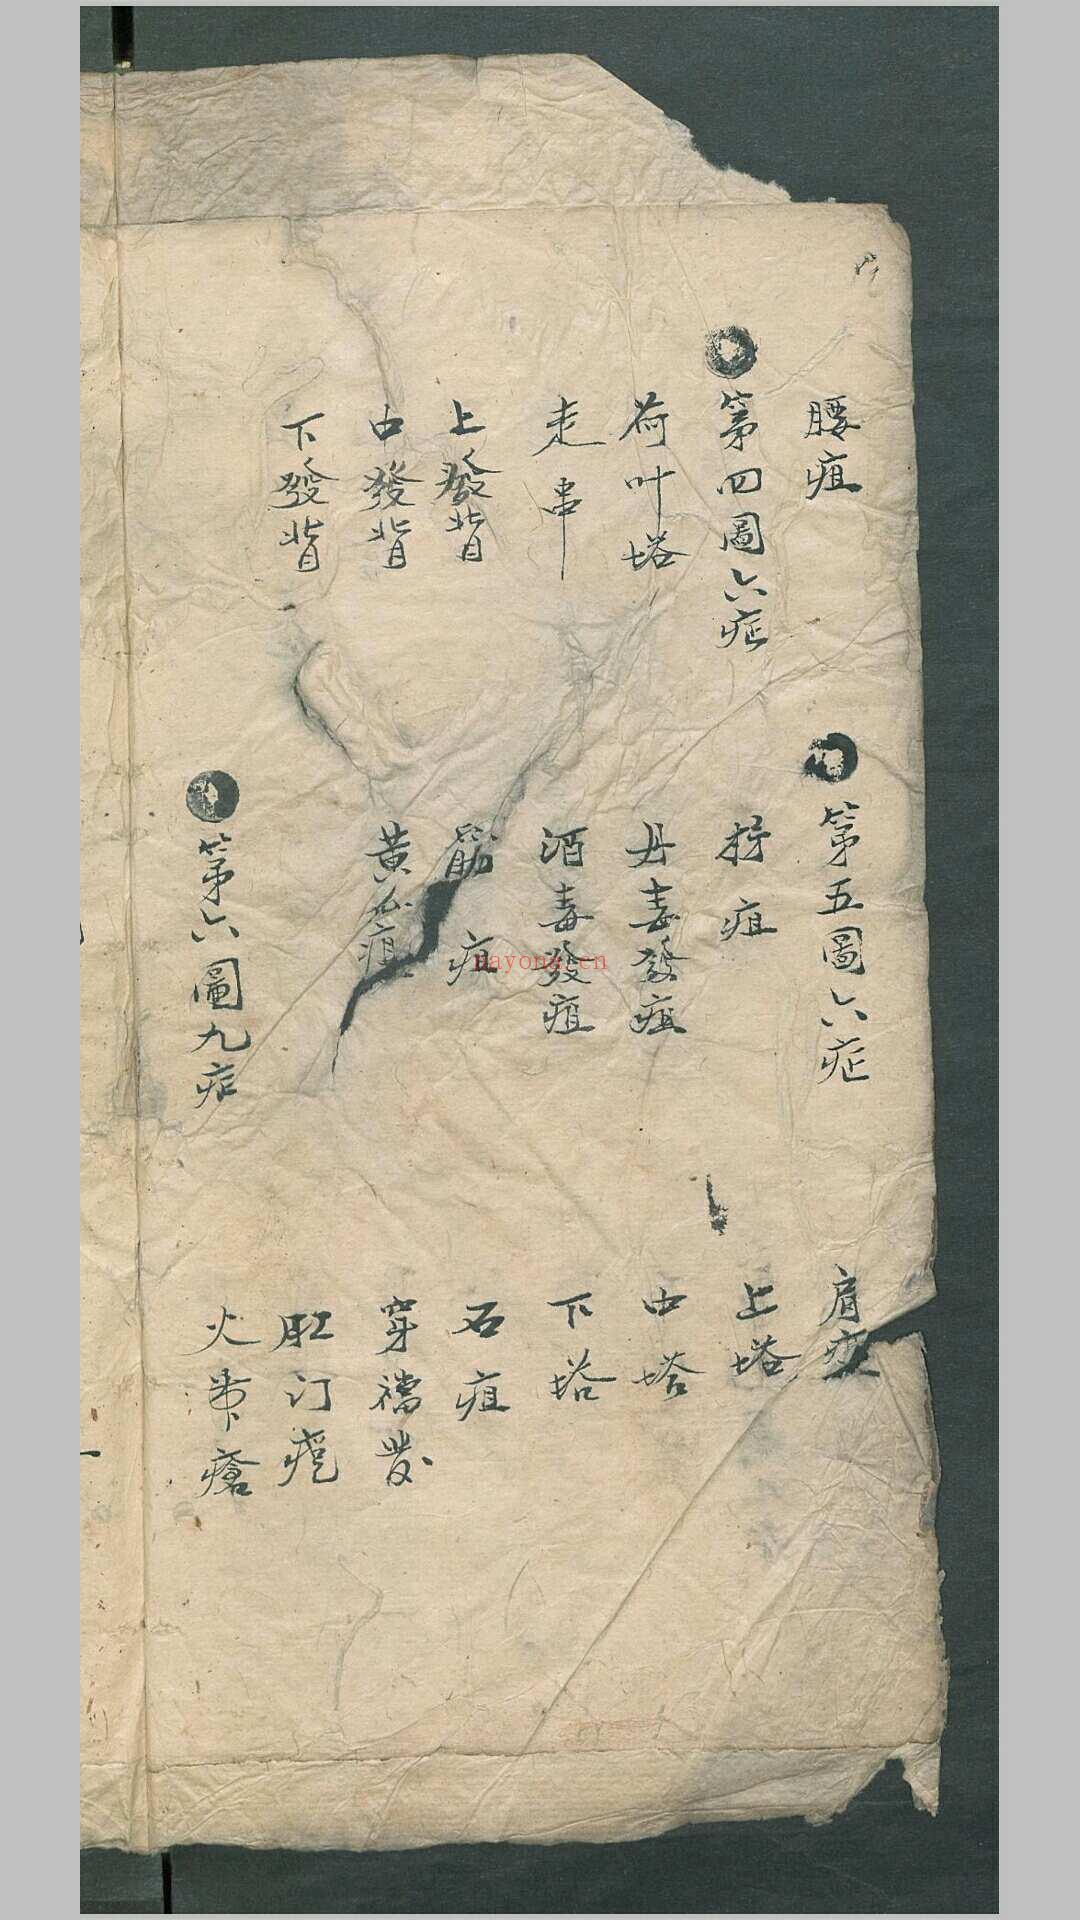 腰疽
第四圖六症
荷叶塔
走串
上發背
中發背
下發背
第五圖六症
疽
丹毒發疽
酒毒發疽
疽
黄瓜疽
第六圖九症
肩疽
上塔
中塔
下塔
石疽
穿襠發
肛门
火串瘡
nayona.cn